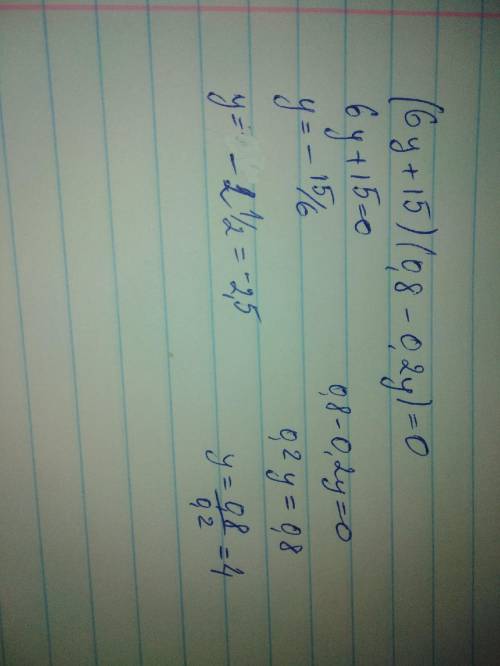 (6y+15)(0,8-0,2y)=0
6y+15=0
y=-15/6
y=-2 1/2=-2,5
0,8-0,2y=0
0,2y=0,8
y=0,8/0,2=4